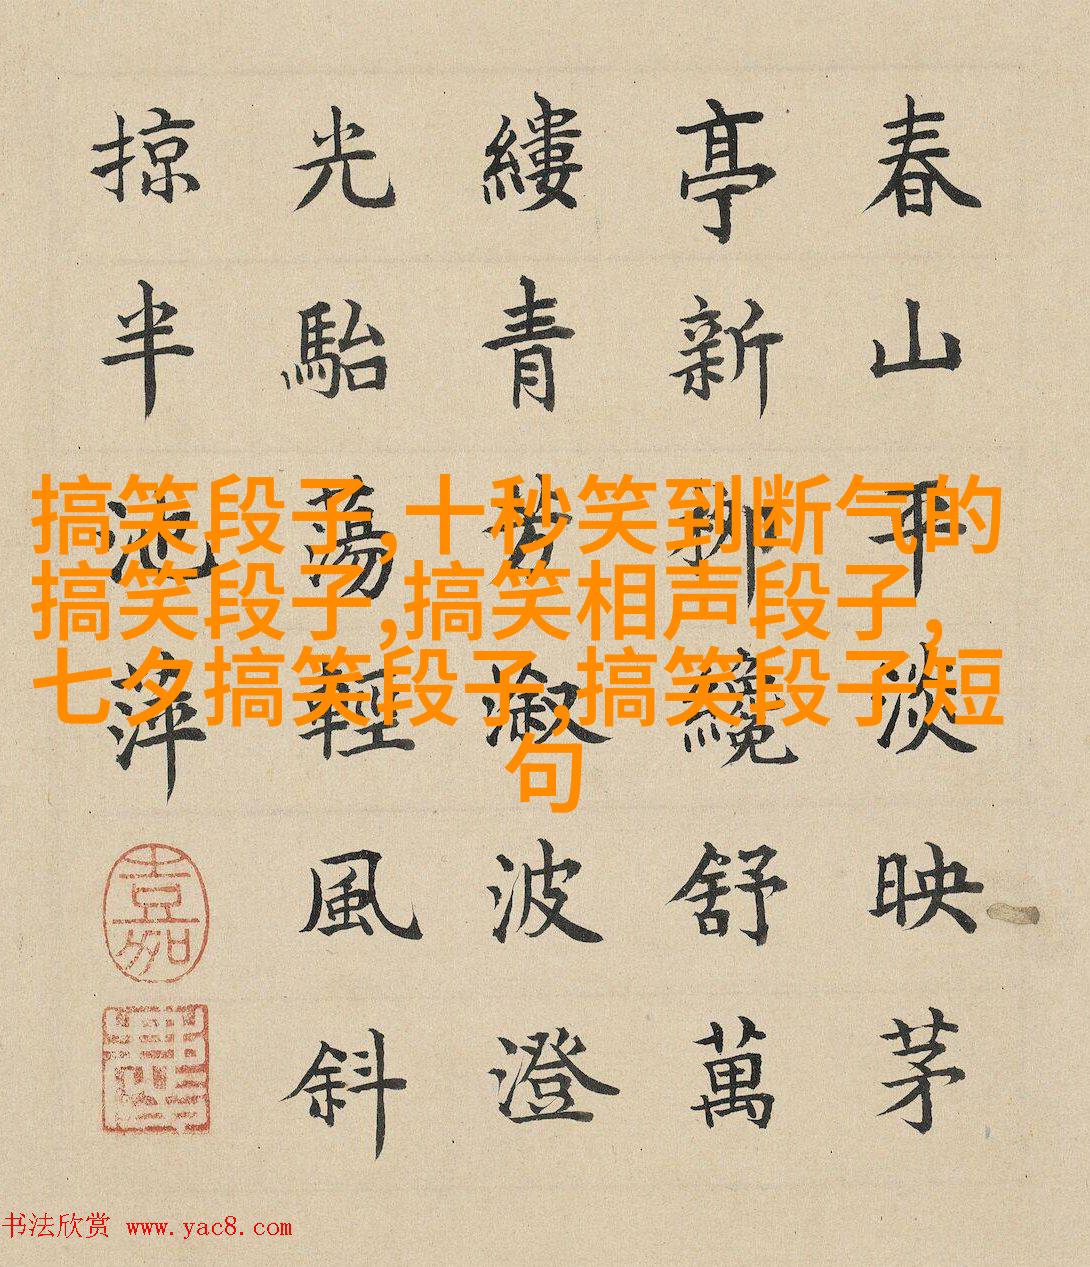 春山平淡映茅
亭新柳纔舒萬
縷青芳淑波澄
光駘蕩輕風斜
掠半池萍
嘉
搞笑段子,十秒笑到断气的
搞笑段子,搞笑相声段子,
七夕搞笑段子,搞笑段子短
句
书法欣赏 www.yac8.com